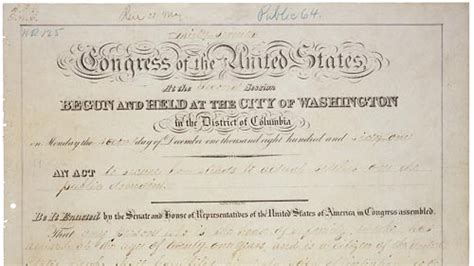 Public 64.
HR 125
Thirty Seventh
Congress of the United States,
At the Second Session
BEGUN AND HELD AT THE CITY OF WASHINGTON
in the District of Columbia
on Monday the second day of December one thousand eight hundred and sixty one
AN ACT to secure homesteads to actual settlers on the
public domain.
Be It Enacted by the Senate and House of Representatives of the United States of America in Congress assembled.
That any person who is the head of a family, or who has
arrived at the age of twenty one years, and is a citizen of the United